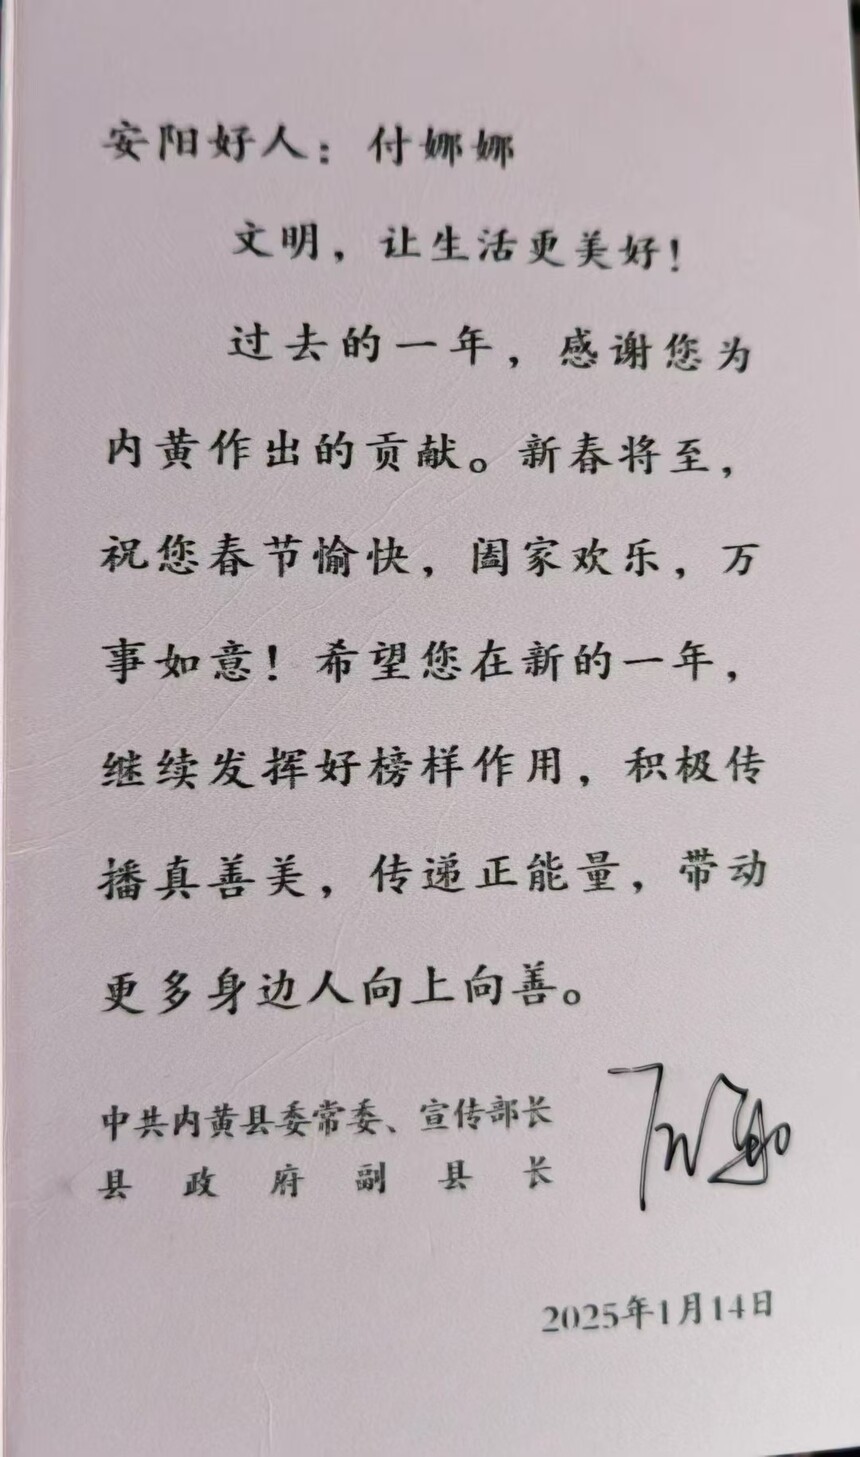 安阳好人：付娜娜
文明，让生活更美好！
过去的一年，感谢您为
内黄作出的贡献。新春将至，
祝您春节愉快，阖家欢乐，万
事如意！希望您在新的一年，
继续发挥好榜样作用，积极传
播真善美，传递正能量，带动
更多身边人向上向善。
中共内黄县委常委、宣传部长
县政府副县长
2025年1月14日